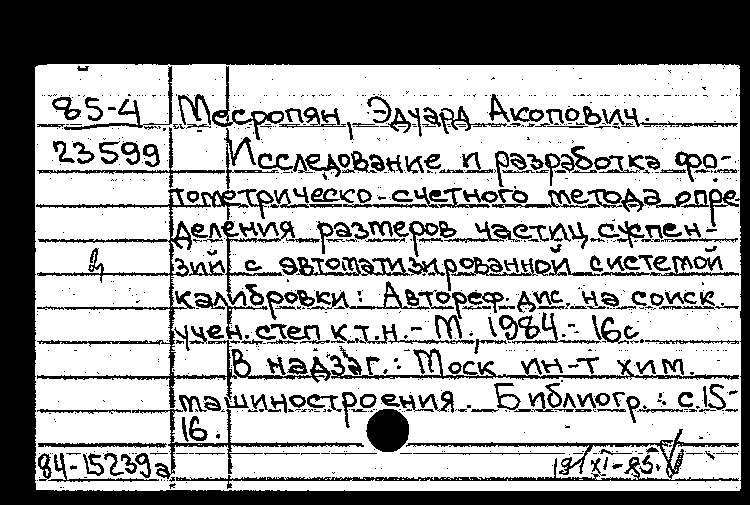 85-4 Месропян, Эдуард Акопович.
23599 Исследование и разработка фо-
тометрическо-счетного метода опре
деления размеров частиц суспен-
зий с автоматизированной системой
калибровки: Автореф. дис. на соиск.
учен. степ к.т.н. - М., 1984. - 16с.
В надзаг.: Моск. ин-т хим.
машиностроения. Библиогр.: с.15-
16.
84-15239а